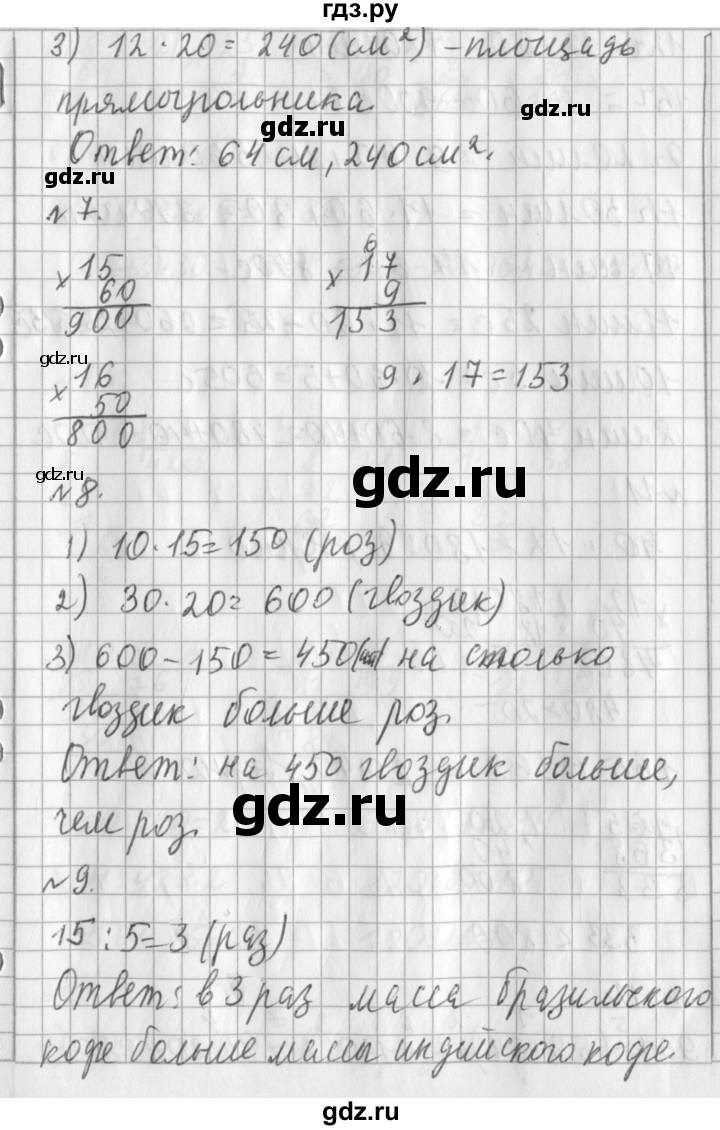 гдз.ру
3) 12 · 20 = 240 (см²) - площадь
прямоугольника.
gdz.ru
gdz.ru
Ответ: 64 см, 240 см².
gdz.ru
№7.
× 15
60
900
6
× 17
9
153
gdz.ru
× 16
50
800
9 · 17 = 153
gdz.ru
gdz.ru
№8.
1) 10 · 15 = 150 (роз)
2) 30 · 20 = 600 (гвоздик)
3) 600 - 150 = 450 на столько
гвоздик больше роз.
Ответ: на 450 гвоздик больше,
gdz.ru
чем роз.
№9.
15 : 5 = 3 (раз)
Ответ: в 3 раз масса бразильского
кофе больше массы индийского кофе.
gdz.ru